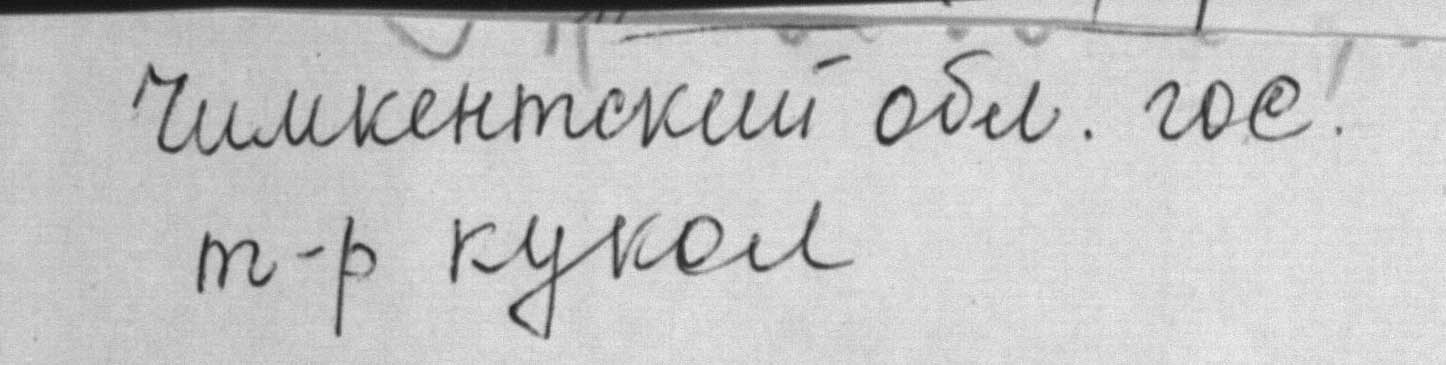 Чимкентский обл. гос.
т-р кукол